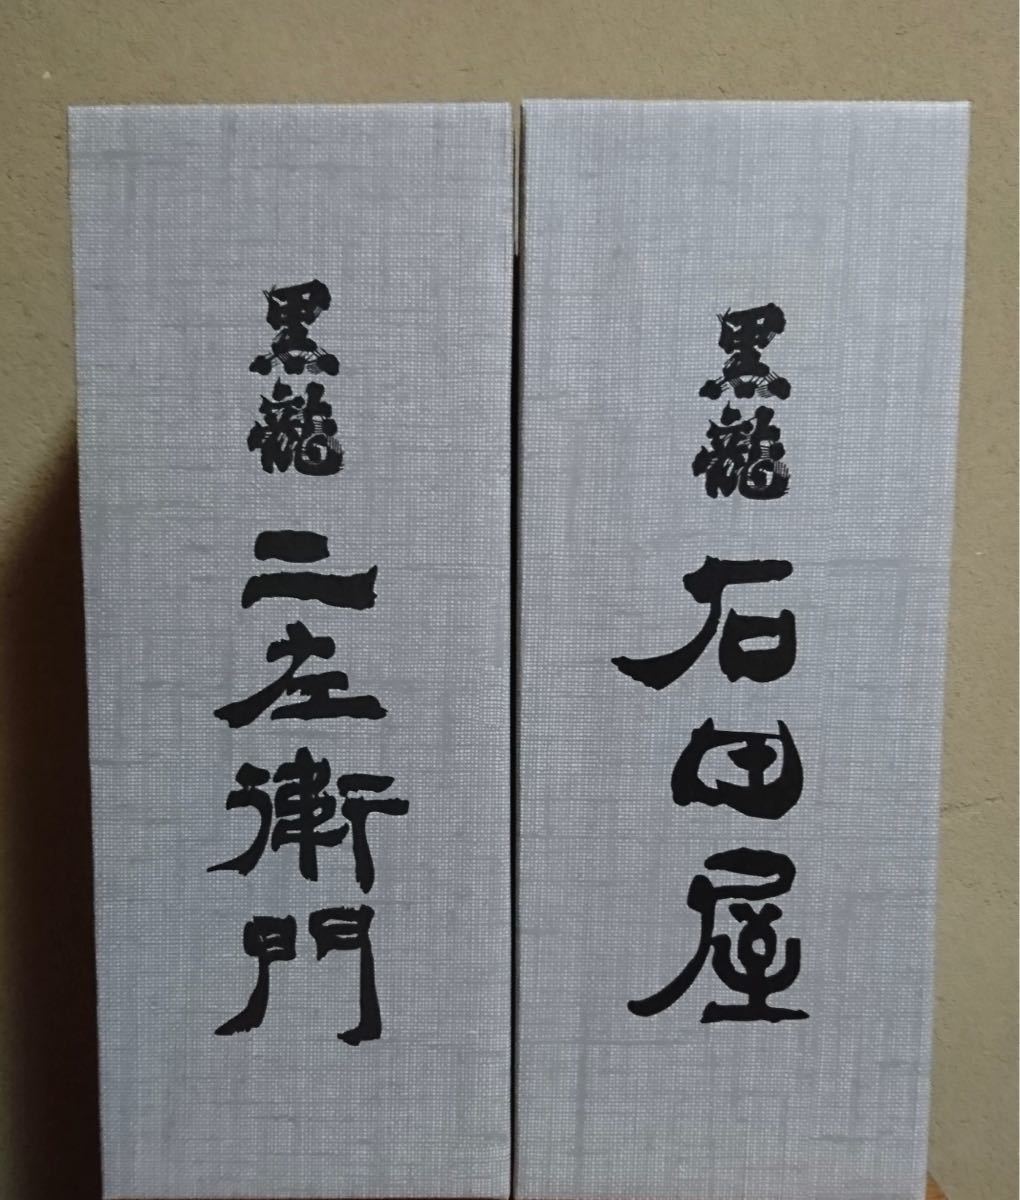 黒龍 二左衛門
黒龍 石田屋